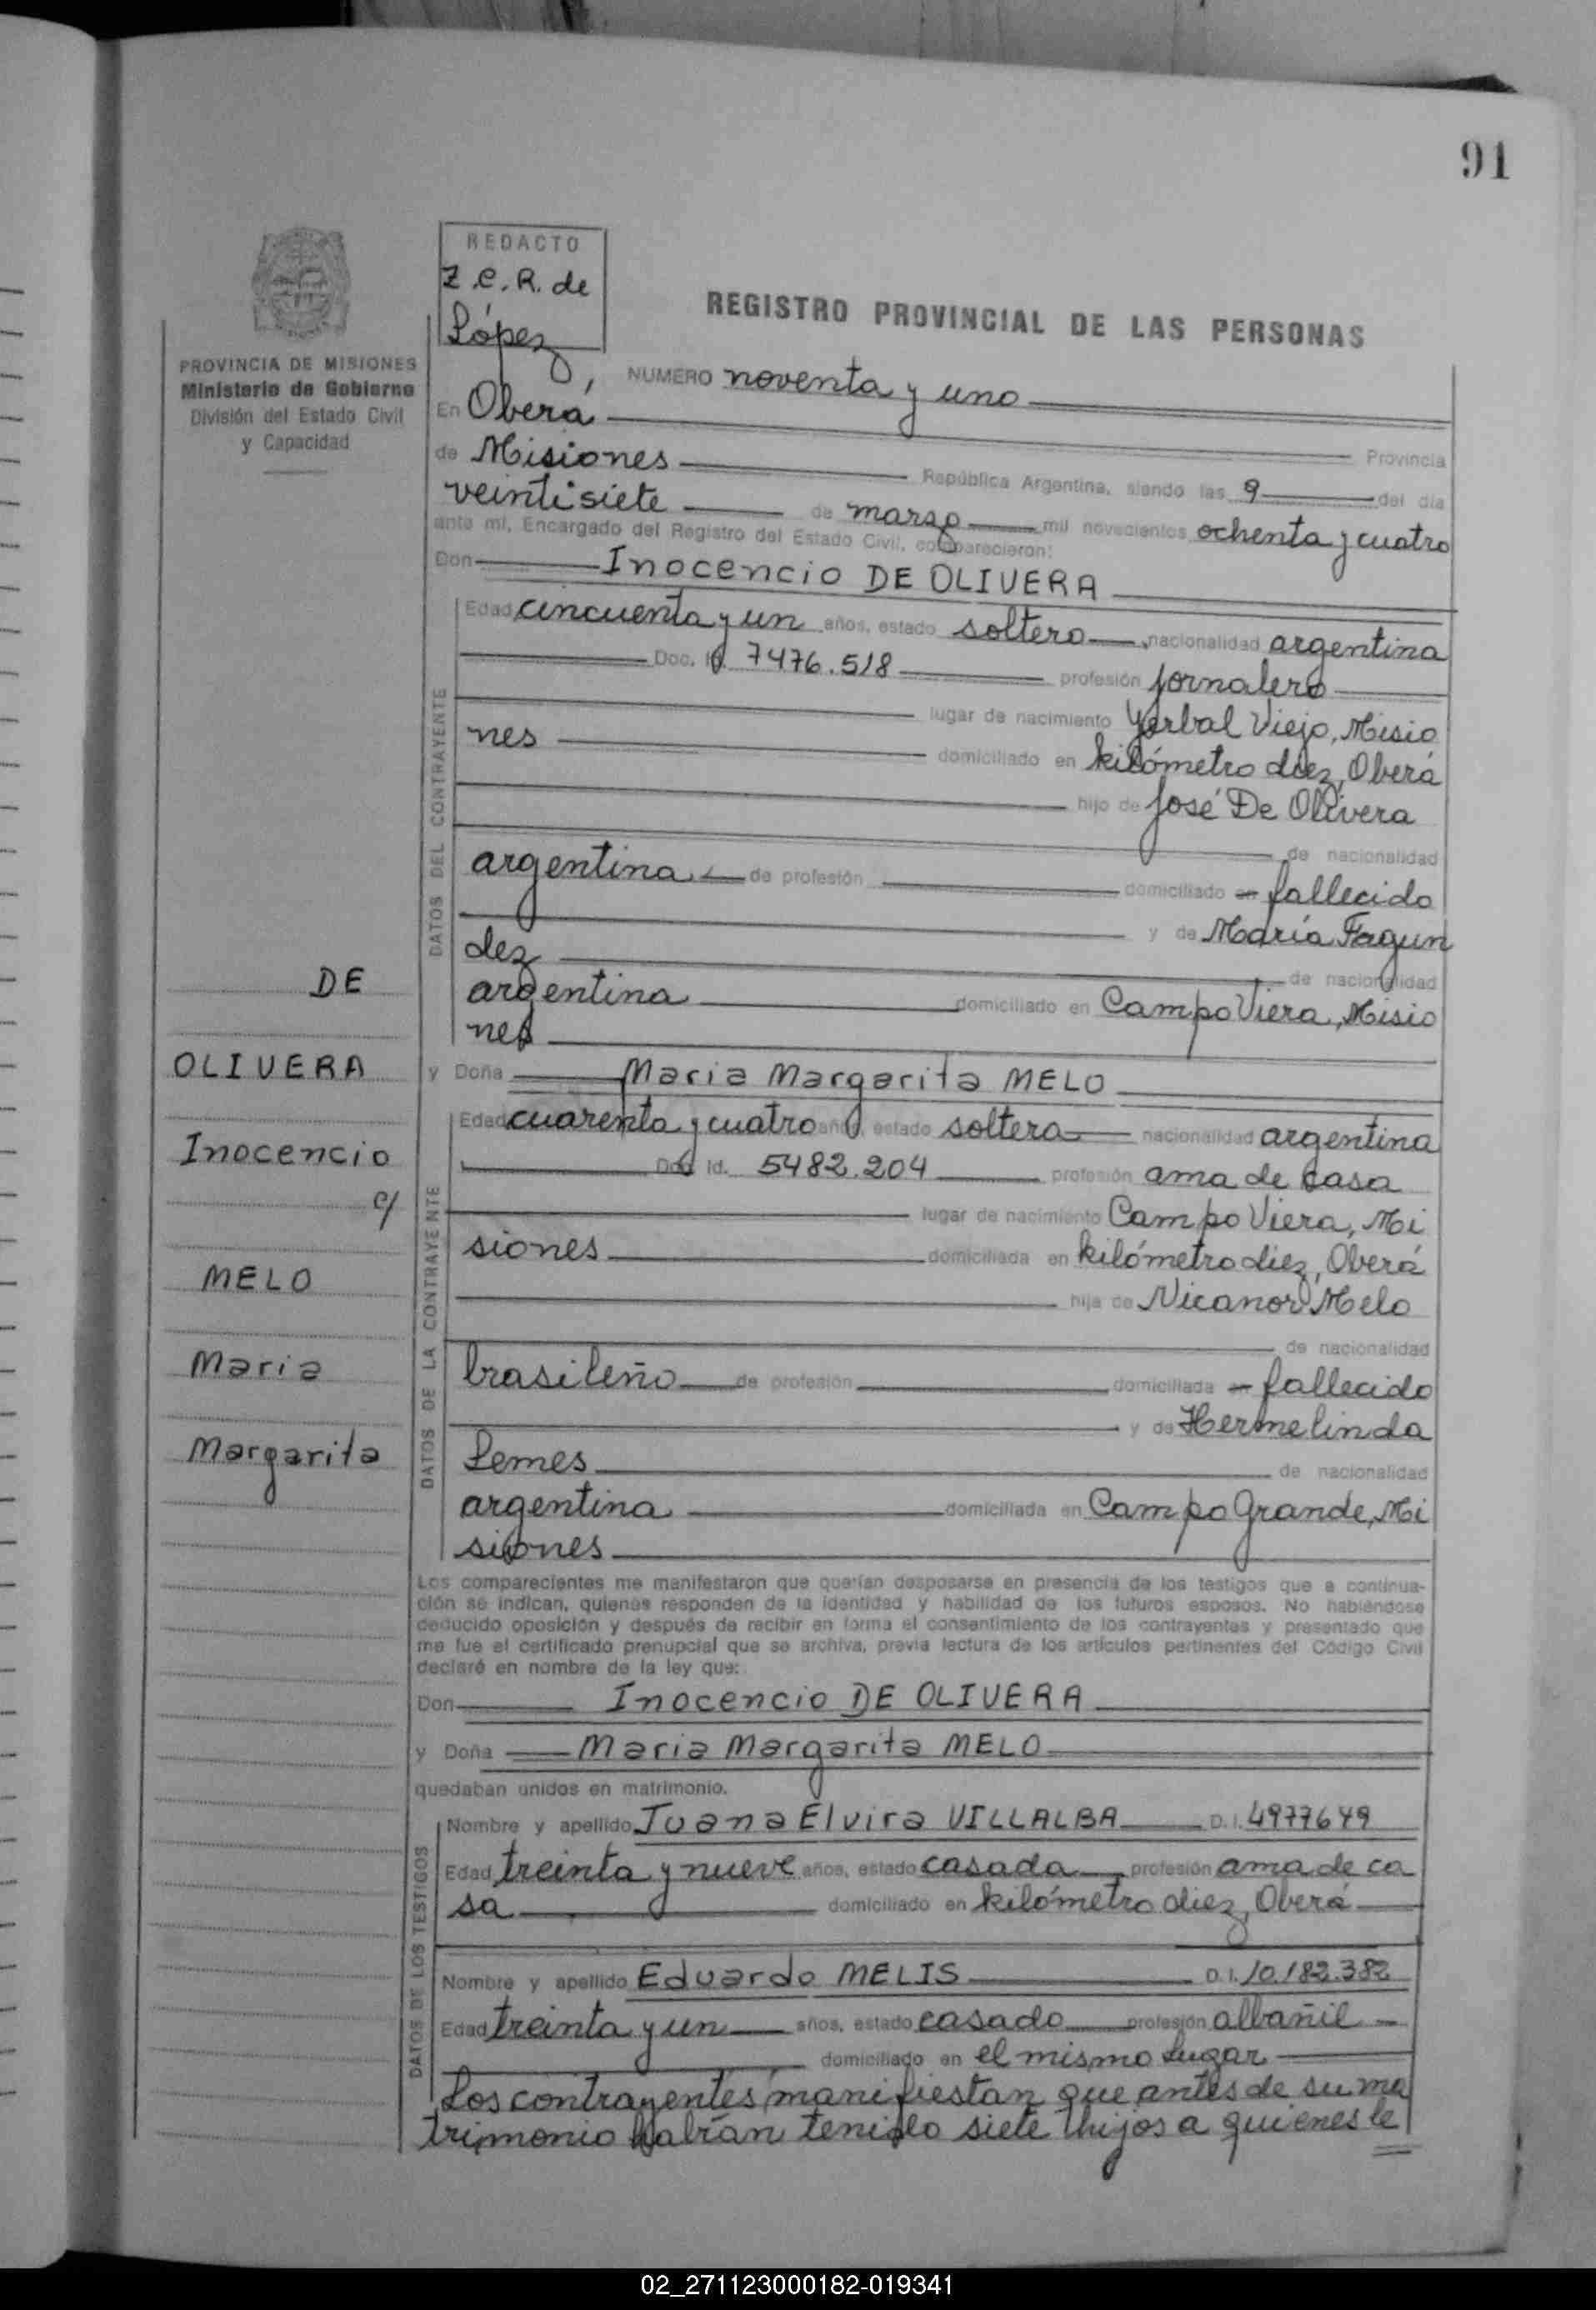 91
REDACTO
Z.C.R. de
López,
REGISTRO PROVINCIAL DE LAS PERSONAS
PROVINCIA DE MISIONES
Ministerio de Gobierno
División del Estado Civil
y Capacidad
NUMERO noventa y uno
En Oberá
Provincia
de Misiones República Argentina, siendo las 9 del día
veintisiete de marzo mil novecientos ochenta y cuatro
ante mí, Encargado del Registro del Estado Civil, comparecieron:
Don Inocencio DE OLIVERA
DATOS DEL CONTRAYENTE
Edad cincuenta y un años, estado soltero, nacionalidad argentina
Doc. Id. 7476.518 profesión jornalero
lugar de nacimiento Yerbal Viejo, Misio
nes domiciliado en kilómetro diez, Oberá
hijo de José De Olivera
de nacionalidad
argentina de profesión domiciliado en fallecido
y de María Fagun
dez de nacionalidad
argentina domiciliado en Campo Viera, Misio
nes
y Doña Maria Margarita MELO
DATOS DE LA CONTRAYENTE
Edad cuarenta y cuatro años, estado soltera nacionalidad argentina
Doc. Id. 5482.204 profesión ama de casa
lugar de nacimiento Campo Viera, Mi
siones domiciliada en kilómetro diez, Oberá
hija de Nicanor Melo
de nacionalidad
brasileño de profesión domiciliada en fallecido
y de Hermelinda
Lemes de nacionalidad
argentina domiciliada en Campo Grande, Mi
siones
DE
OLIVERA
Inocencio
c/
MELO
Maria
Margarita
Los comparecientes me manifestaron que querían desposarse en presencia de los testigos que a continua-
ción se indican, quienes responden de la identidad y habilidad de los futuros esposos. No habiéndose
deducido oposición y después de recibir en forma el consentimiento de los contrayentes y presentado que
me fue el certificado prenupcial que se archiva, previa lectura de los artículos pertinentes del Código Civil
declaré en nombre de la ley que:
Don Inocencio DE OLIVERA
y Doña Maria Margarita MELO
quedaban unidos en matrimonio.
DATOS DE LOS TESTIGOS
Nombre y apellido Juana Elvira VILLALBA D.I. 4977649
Edad treinta y nueve años, estado casada profesión ama de ca
sa domiciliado en kilómetro diez, Oberá
Nombre y apellido Eduardo MELIS D.I. 10.182.382
Edad treinta y un años, estado casado profesión albañil
domiciliado en el mismo lugar
Los contrayentes manifiestan que antes de su ma
trimonio habían tenido siete hijos a quienes le
02_271123000182-019341